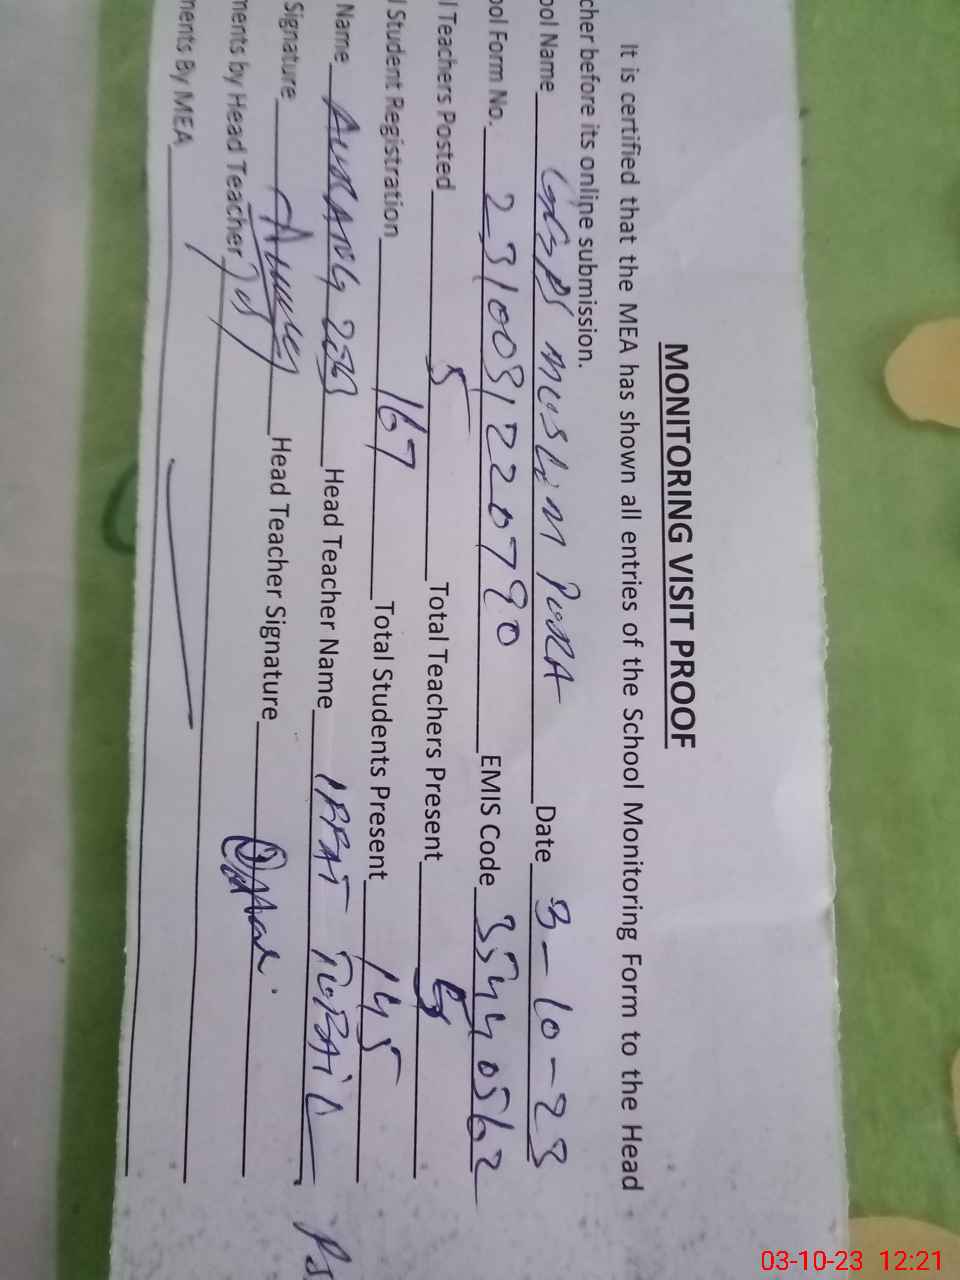 MONITORING VISIT PROOF
It is certified that the MEA has shown all entries of the School Monitoring Form to the Head
cher before its online submission.
ool Name MUSLIM PURA Date 3-10-23
ool Form No. 2310031220790 EMIS Code 35440562
l Teachers Posted 5 Total Teachers Present 5
l Student Registration 167 Total Students Present 145
Name Head Teacher Name IFFAT
Signature Head Teacher Signature
ments by Head Teacher
ments By MEA
03-10-23 12:21